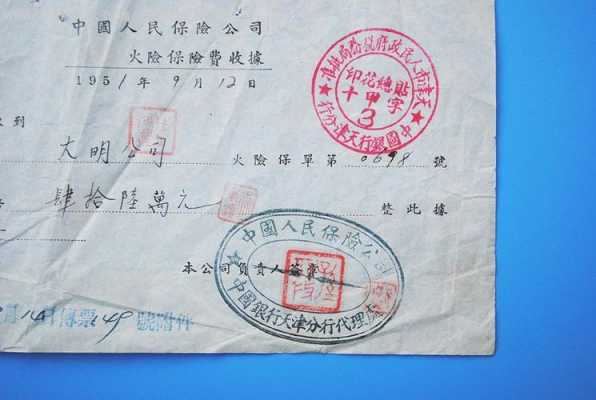 中國人民保險公司
火險保險費收據
1951年9月12日
收到
大明公司 火險保單第0698號
肆拾陸萬元 整此據
本公司負責人簽費
天津市人民政府稅務局批准
印花總貼
十甲字
3
中國銀行天津分行
中國人民保險公司
中國銀行天津分行代理處
月14日傳票149號附件